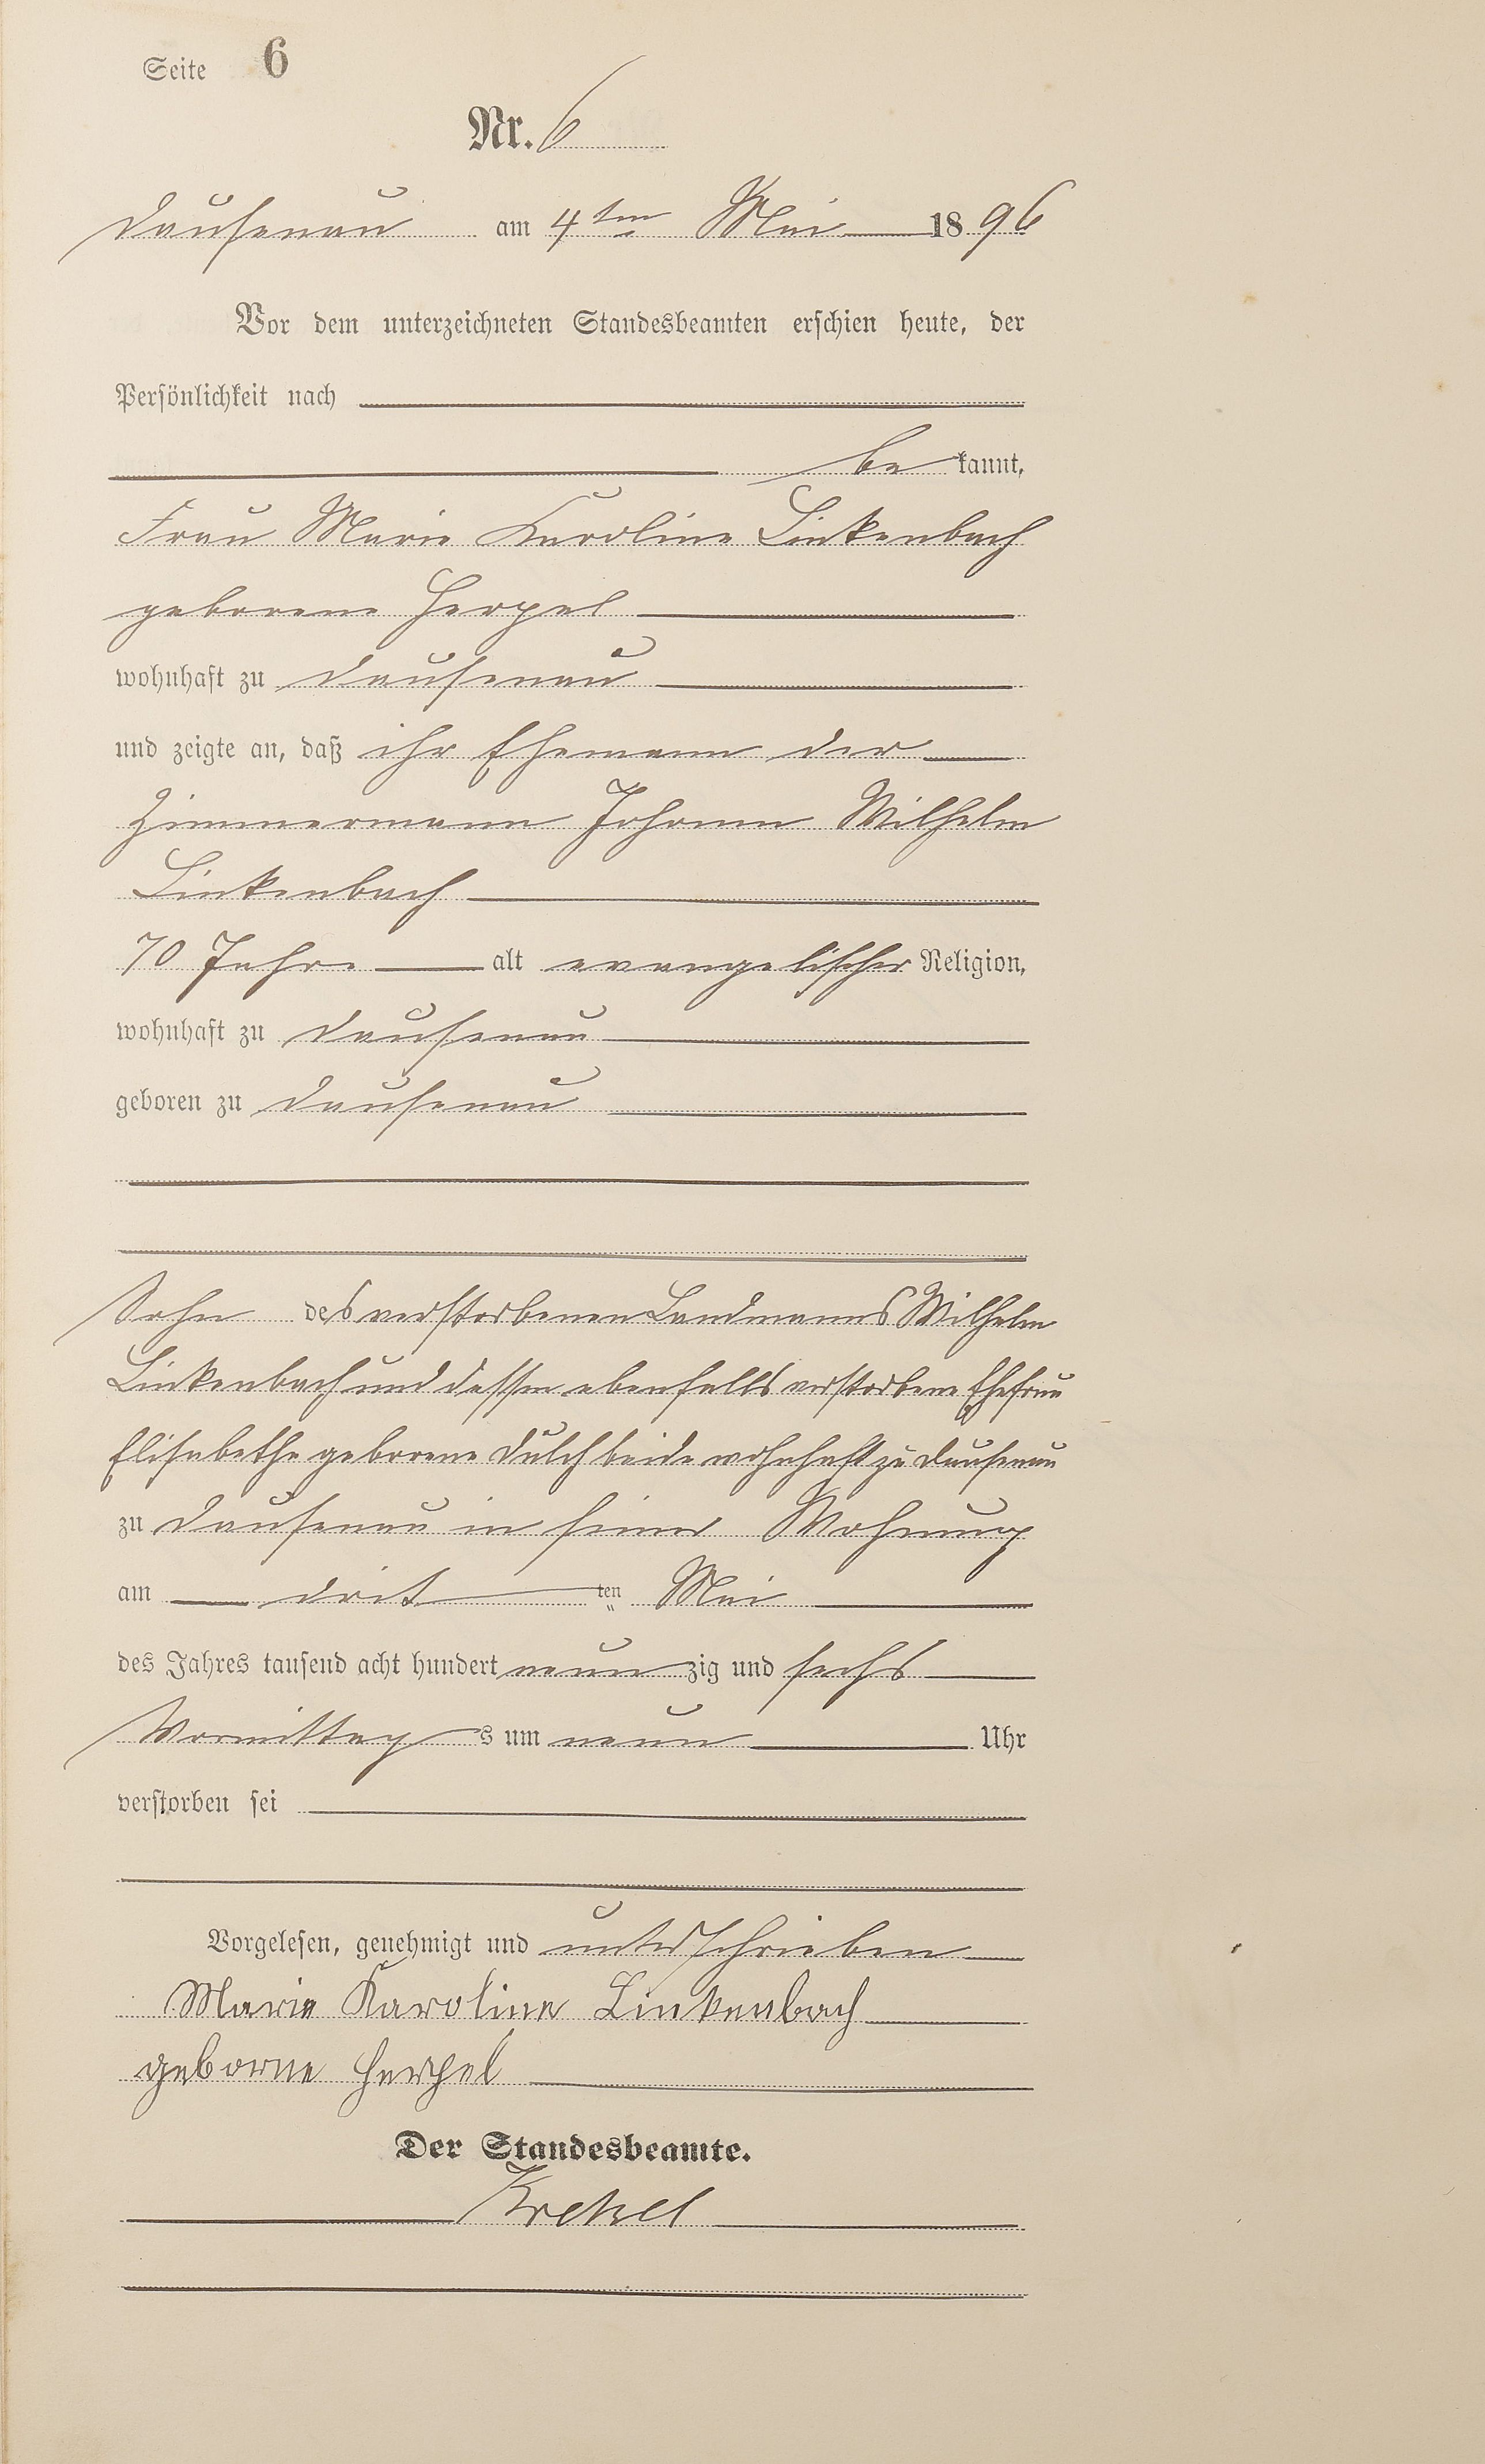 Seite 6
Nr. 6
Dausenau am 4ten Mai 1896
Vor dem unterzeichneten Standesbeamten erschien heute, der
Persönlichkeit nach
be kannt,
Frau Marie Karoline Linkenbach
geborene Herpel
wohnhaft zu Dausenau
und zeigte an, daß ihr Ehemann der
Zimmermann Johann Wilhelm
Linkenbach
70 Jahre alt evangelischer Religion,
wohnhaft zu Dausenau
geboren zu Dausenau
Sohn des verstorbenen Landmanns Wilhelm
Linkenbach und dessen ebenfalls verstorbene Ehefrau
Elisabethe geborene Dulch beide wohnhaft zu Dausenau
zu Dausenau in seiner Wohnung
am drit ten Mai
des Jahres tausend acht hundert neun zig und sechs
Vormittag s um neun Uhr
verstorben sei
Vorgelesen, genehmigt und unterschrieben
Marie Karoline Linkenbach
geborne Herpel
Der Standesbeamte.
Krekel